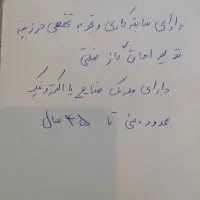 دارای سابقه کاری و تجربه تخصصی در زمینه
تعمیر اجاق گاز صنعتی
دارای مدرک صنایع یا الکترونیک
محدوده سنی تا ۴۵ سال